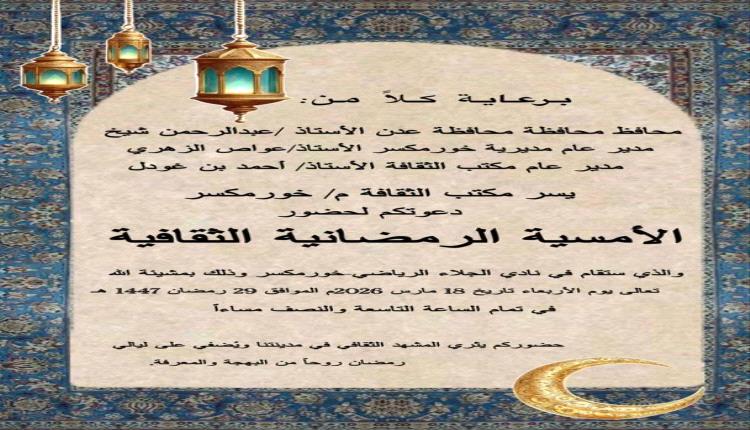 برعاية كلاً من:
محافظ محافظة محافظة عدن الأستاذ /عبدالرحمن شيخ
مدير عام مديرية خورمكسر الأستاذ/عواص الزهري
مدير عام مكتب الثقافة الأستاذ/ أحمد بن غودل
يسر مكتب الثقافة م/ خورمكسر
دعوتكم لحضور
الأمسية الرمضانية الثقافية
والذي ستقام في نادي الجلاء الرياضي.خورمكسر وذلك بمشيئة الله
تعالى يوم الأربعاء تاريخ 18 مارس 2026م الموافق 29 رمضان 1447 هـ
في تمام الساعة التاسعة والنصف مساءاً
حضوركم يثري المشهد الثقافي في مدينتنا ويُضفي على ليالي
رمضان روحاً من البهجة والمعرفة.